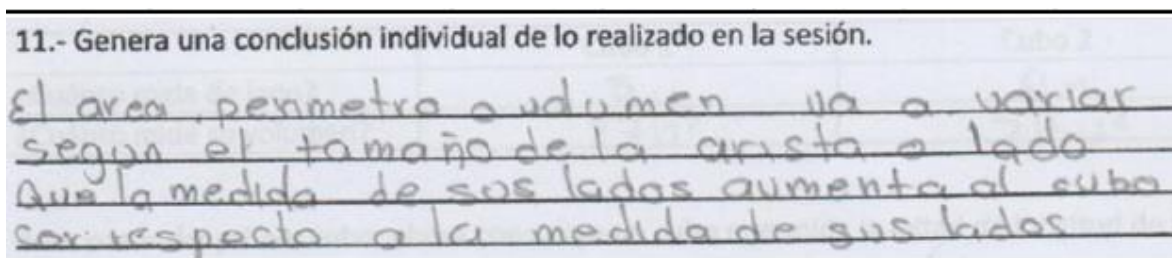 11.- Genera una conclusión individual de lo realizado en la sesión.
El area, perimetro o volumen va a variar
segun el tamaño de la arista o lado
Que la medida de sus lados aumenta al cubo
con respecto a la medida de sus lados